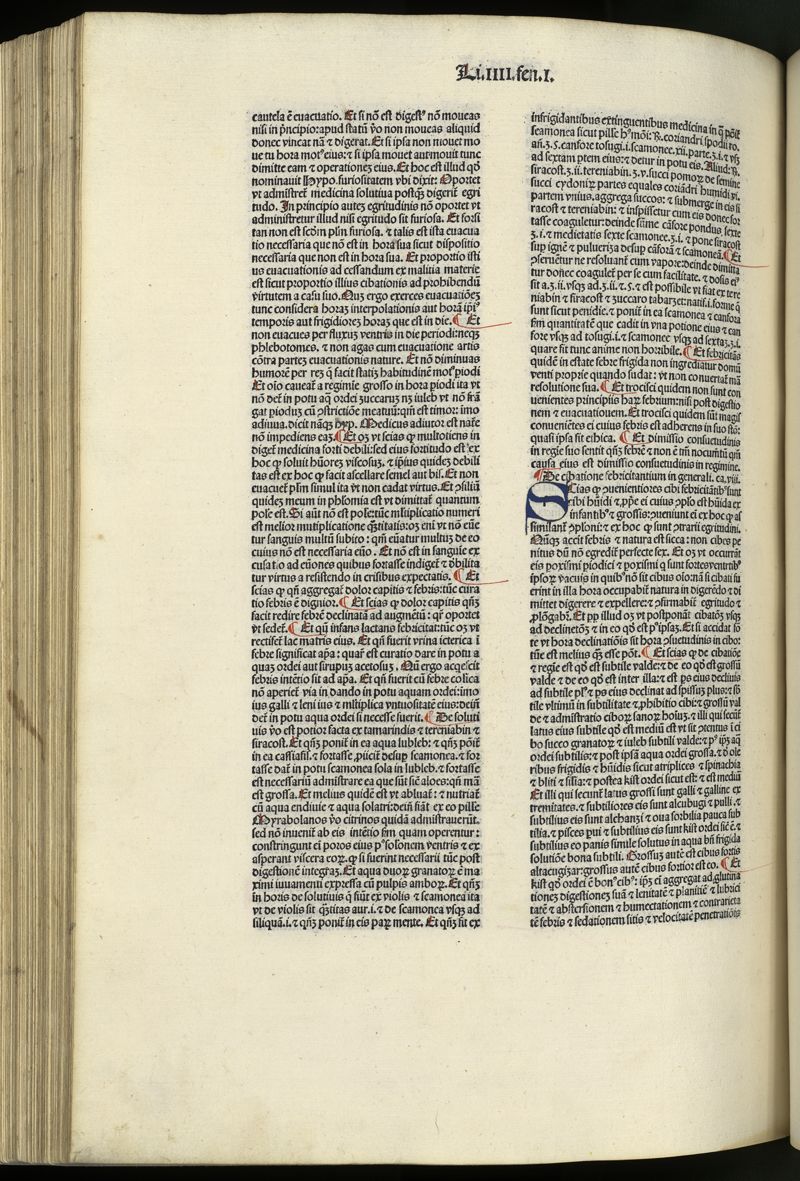 Li.IIII.fen.I.
cautela ē euacuatio. Et si nō est digestꝰ nō moueas
nisi in p̄ncipio: apud statū v̄o non moueas aliquid
donec vincat nā & digerat. Et si ipsa non mouet mo
ue tu hora motꝰ eius: & si ipsa mouet aut mouit tunc
dimitte eam & operationeȝ eius. Et hoc est illud qđ
nominauit Hypo. furiositatem vbi dixit: Oportet
vt administret̄ medicina solutiua postq̄ȝ digerit̄ egri
tudo. In principio auteȝ egritudinis nō oportet vt
administretur illud nisi egritudo sit furiosa. Et forsi
tan non est scđm pl̄m furiosa. & talis est ista euacua
tio necessaria que nō est in hora sua sicut dispositio
necessaria que non est in hora sua. Et proportio isti
us euacuationis ad cessandum ex malitia materie
est sicut proportio illius cibationis ad prohibendū
virtutem a casu suo. Qūȝ ergo exerces euacuatiōeȝ
tunc considera horaȝ interpolationis aut horā ip̄i
temporis aut frigidioreȝ horaȝ que est in die. ¶ Et
non euacues per fluxuȝ ventris in die periodi: neqȝ
phlebotomes. & non agas cum euacuatione artis
cōtra parteȝ euacuationis nature. Et nō diminuas
humorē per reȝ q̄ facit statiȝ habitudinē motꝰ piodi
Et oīo caueat̄ a regimīe grosso in hora piodi ita vt
nō det̄ in potu aq̄ ordei ȝuccaruȝ nȝ iuleb vt nō frā
gat̄ pioduȝ cū ꝯstrictiōe meatuū: qm̄ est timor: imo
adiuua. dicit nāqȝ hyp. Medicus adiutor est nat̄e
nō impediens eaȝ. ¶ Et oȝ vt scias ꝙ multotiens in
diget̄ medicina forti debili: sed eius fortitudo est ex
hoc ꝙ soluit hūoreȝ viscosuȝ. & ip̄ius quideȝ debili
tas est ex hoc ꝙ facit ascellare semel aut bis. Et non
euacuet̄ pl̄m simul ita vt non cadat virtus. Et ꝯsiliū
quideȝ meum in phlomia est vt dimittat̄ quantum
pole est. Si aūt nō est pole: tūc mltiplicatio numeri
est melior mutiplicatione q̄ntitatis: oȝ eni vt nō euē
tur sanguis multū subito: qm̄ euātur multuȝ de eo
cuius nō est necessaria euō. Et nō est in sanguīe ex
cusatio ad euōnes quibus fortasse indiget̄ & dbilita
tur virtus a resistendo in crisibus expectatis. ¶ Et
scias ꝙ qn̄ aggregat̄ dolor capitis & febris: tūc cura
tio febris ē dignior. ¶ Et scias ꝙ dolor capitis qn̄ȝ
facit redire febrē declinatā ad augm̄tū: qr̄ oportet
vt sedet̄. ¶ Et qn̄ infans lactans febricitat: tūc oȝ vt
rectificet̄ lac matris eius. Et qn̄ fuerit vrina icterica ī
febre significat ap̄a: quar̄ est curatio dare in potu a
quaȝ ordei aut siruputȝ acetosuȝ. Nō ergo acq̄escit
febris intētio sit ad ap̄a. Et qn̄ fuerit cū febre colica
nō aperiet̄ via in dando in potu aquam ordei: imo
ius galli & leni ius & mltiplica vntuositatē eius: dein
det̄ in potu aqua ordei si necesse fuerit. ¶ De soluti
uis v̄o est potior facta ex tamarindis & tereniabin &
siracost. Et qn̄ȝ ponit̄ in ea aqua lubleb: & qn̄ȝ pōit̄
in ea cassiafis̄. & fortasse ꝓiicit̄ desuꝑ scamonea. & for
tasse dat̄ in potu scamonea sola in lubleb. & fortasse
est necessariū admistrare ea que sūt sic̄ aloes: qm̄ mā
est grossa. Et melius quidē est vt abluat̄: & nutriat̄
cū aqua endiuie & aqua solatri: dein̄ fiāt ex eo pille
Myrabolanos v̄o citrinos quidā admistrauerūt.
sed nō inuenit̄ ab eis intētio fm̄ quam operentur:
constringunt eī poros eius pꝰ solōnem ventris & ex
asperant viscera eoꝝ. ꝙ si fuerint necessarii tūc post
digestionē integraȝ. Et aqua duoꝝ granatoꝝ ē ma
ximi iuuamenti expressa cū pulpis amboꝝ. Et qn̄ȝ
in horis de solutiuis q̄ fiūt ex violis & scamonea ita
vt de violis sit q̄ntitas aur.i. & de scamonea vsqȝ ad
siliquā.i. & qn̄ȝ ponit̄ in eis paꝝ mente. Et qn̄ȝ fit ex
infrigidantibus extinguentibus medicina in q̄ pōit̄
scamonea sicut pille hꝰmōi: ℞. coriandri spodii to.
añ.ʒ.5. canfore tosugi.i. scamonee.xii. parte.ʒ.i. & vsqȝ
ad sextam ptem eius: & detur in potu eis. Aliud: ℞.
siracost.ʒ.ii. tereniabin.ʒ.v. succi pomoꝝ de semine
succi cydonioꝝ partes equales coriādri humidi vi.
partem vnius. aggrega succos: & submerge in eis si
racost & tereniabin: & inspissetur cum eis donec for
tasse coaguletur: deinde sūme cāfore pondus sexte
ʒ.i. & medietatis sexte scamonee.ʒ.i. & pone siracost
sup ignē & pulueriȝa desup cāforā & scamoneā. ¶ Et
ꝯseruētur ne resoluant̄ cum vapore: deinde dimitta
tur donec coagulet̄ per se cum facilitate. & dosis eiꝰ
sit a.ʒ.ii. vsqȝ ad.ʒ.ii.&.5. & est possibile vt fiat ex tere
niabin & siracost & ȝuccaro tabarȝet: natif.i. forme q̄
sunt sicut penidie. & ponit̄ in ea scamonea & canfora
fm̄ quantitatē que cadit in vna potione eius & can
fore vsqȝ ad tosugi.i. & scamonee vsqȝ ad sextaȝ.ʒ.i.
quare fit tunc anime non horibile. ¶ Et febricitās
quidē in estate febre frigida non ingrediatur domū
venti proprie quando sudat: vt non conuertat̄ mā
resolutione sua. ¶ Et trocisci quidem non sunt con
uenientes principiis haꝝ febrium: nisi post digestio
nem & euacuationem. Et trocisci quidem sūt magis
conueniētes ei cuius febris est adherens in suo stō:
quasi ipsa sit ethica. ¶ Et dimissio consuetudinis
in regīe suo sentit qn̄ȝ febrē & non ē tm̄ nocum̄tū qm̄
causa eius est dimissio consuetudinis in regimine.
¶ De cibatione febricitantium in generali. ca.viii.
SCias ꝙ ꝯuenientiores cibi febricitātibꝰ sunt
cibi hūidi &, ꝓp̄e ei cuius ꝯplo est hūida ex
infantibꝰ & grossis: ꝯueniunt eī ex hoc ꝙ as
similant̄ ꝯploni: & ex hoc ꝙ sunt ꝯtrarii egritudini.
Nūqȝ accit̄ febris & natura est sicca: non cibes pe
nitus dū nō egredit̄ perfecte fex. Et oȝ vt occurrāt
eis poxismi piodici & poxismi q̄ sunt fortes ventribꝰ
ipsoꝝ vacuis in quibꝰ nō sit cibus oīo: nā si cibati fu
erint in illa hora occupabit̄ natura in digerēdo & di
mittet digerere & expellere: & ꝯfirmabit̄ egritudo &
ꝓlōgabr̄. Et ꝓp̄ illud oȝ vt postponat̄ cibatōȝ vsqȝ
ad declinetōȝ & in eo qđ est pꝰ ipsaȝ. Et si accidat fo
te vt hora declinatiōis sit hora ꝯsuetudinis in cibo:
tūc est melius q̄ȝ esse pōt. ¶ Et scias ꝙ de cibatiōe
& regīe est qđ est subtile valde: & de eo qđ est grossū
valde & de eo qđ est inter illa: & est ps̄ eius decliuis
ad subtile plꝰ & ps̄ eius declinat ad spissuȝ plus: & sb
tile vltimū in subtilitate &, ꝓhibitio cibi: & grossū val
de & admistratio ciboꝝ sanoꝝ hoīuȝ. & illi qui secūt̄
latus eius subtile qđ est mediū est vt sit ꝯtentus ī ci
bo succo granatoꝝ & iuleb subtili valde: & pꝰ ip̄ȝ aq̄
ordei subtilis: & post ipsā aqua ordei grossa. & đ ole
ribus frigidis & hūidis sicut atriplices & spinachia
& bliti & silia: & postea kist ordei sicut est: & est mediū
Et illi qui secunt̄ latus grossi sunt galli & galline ex
tremitates. & subtiliores eis sunt alcubugi & pulli. &
subtilius eis sunt alchanȝi & oua sorbilia pauca sub
tilia. & pisces ꝑui & subtilius eis sunt kist ordei sic̄ ē. &
subtilius eo panis simile solutus in aqua bn̄ frigida
solutiōe bona subtili. Grossuȝ autē est cibus fortis
altaeugiȝar: grossus autē cibus fortior est eo. ¶ Et
kist qđ ordei ē bonꝰ cibꝰ: ip̄ȝ eī aggregat ad glutina
tionez digestiones suā & lenitatē & planitiē & lubrici
tatē & abstersionem & humectationem & contrarieta
tē febris & sedationem sitis & velocitatē penetratiōis